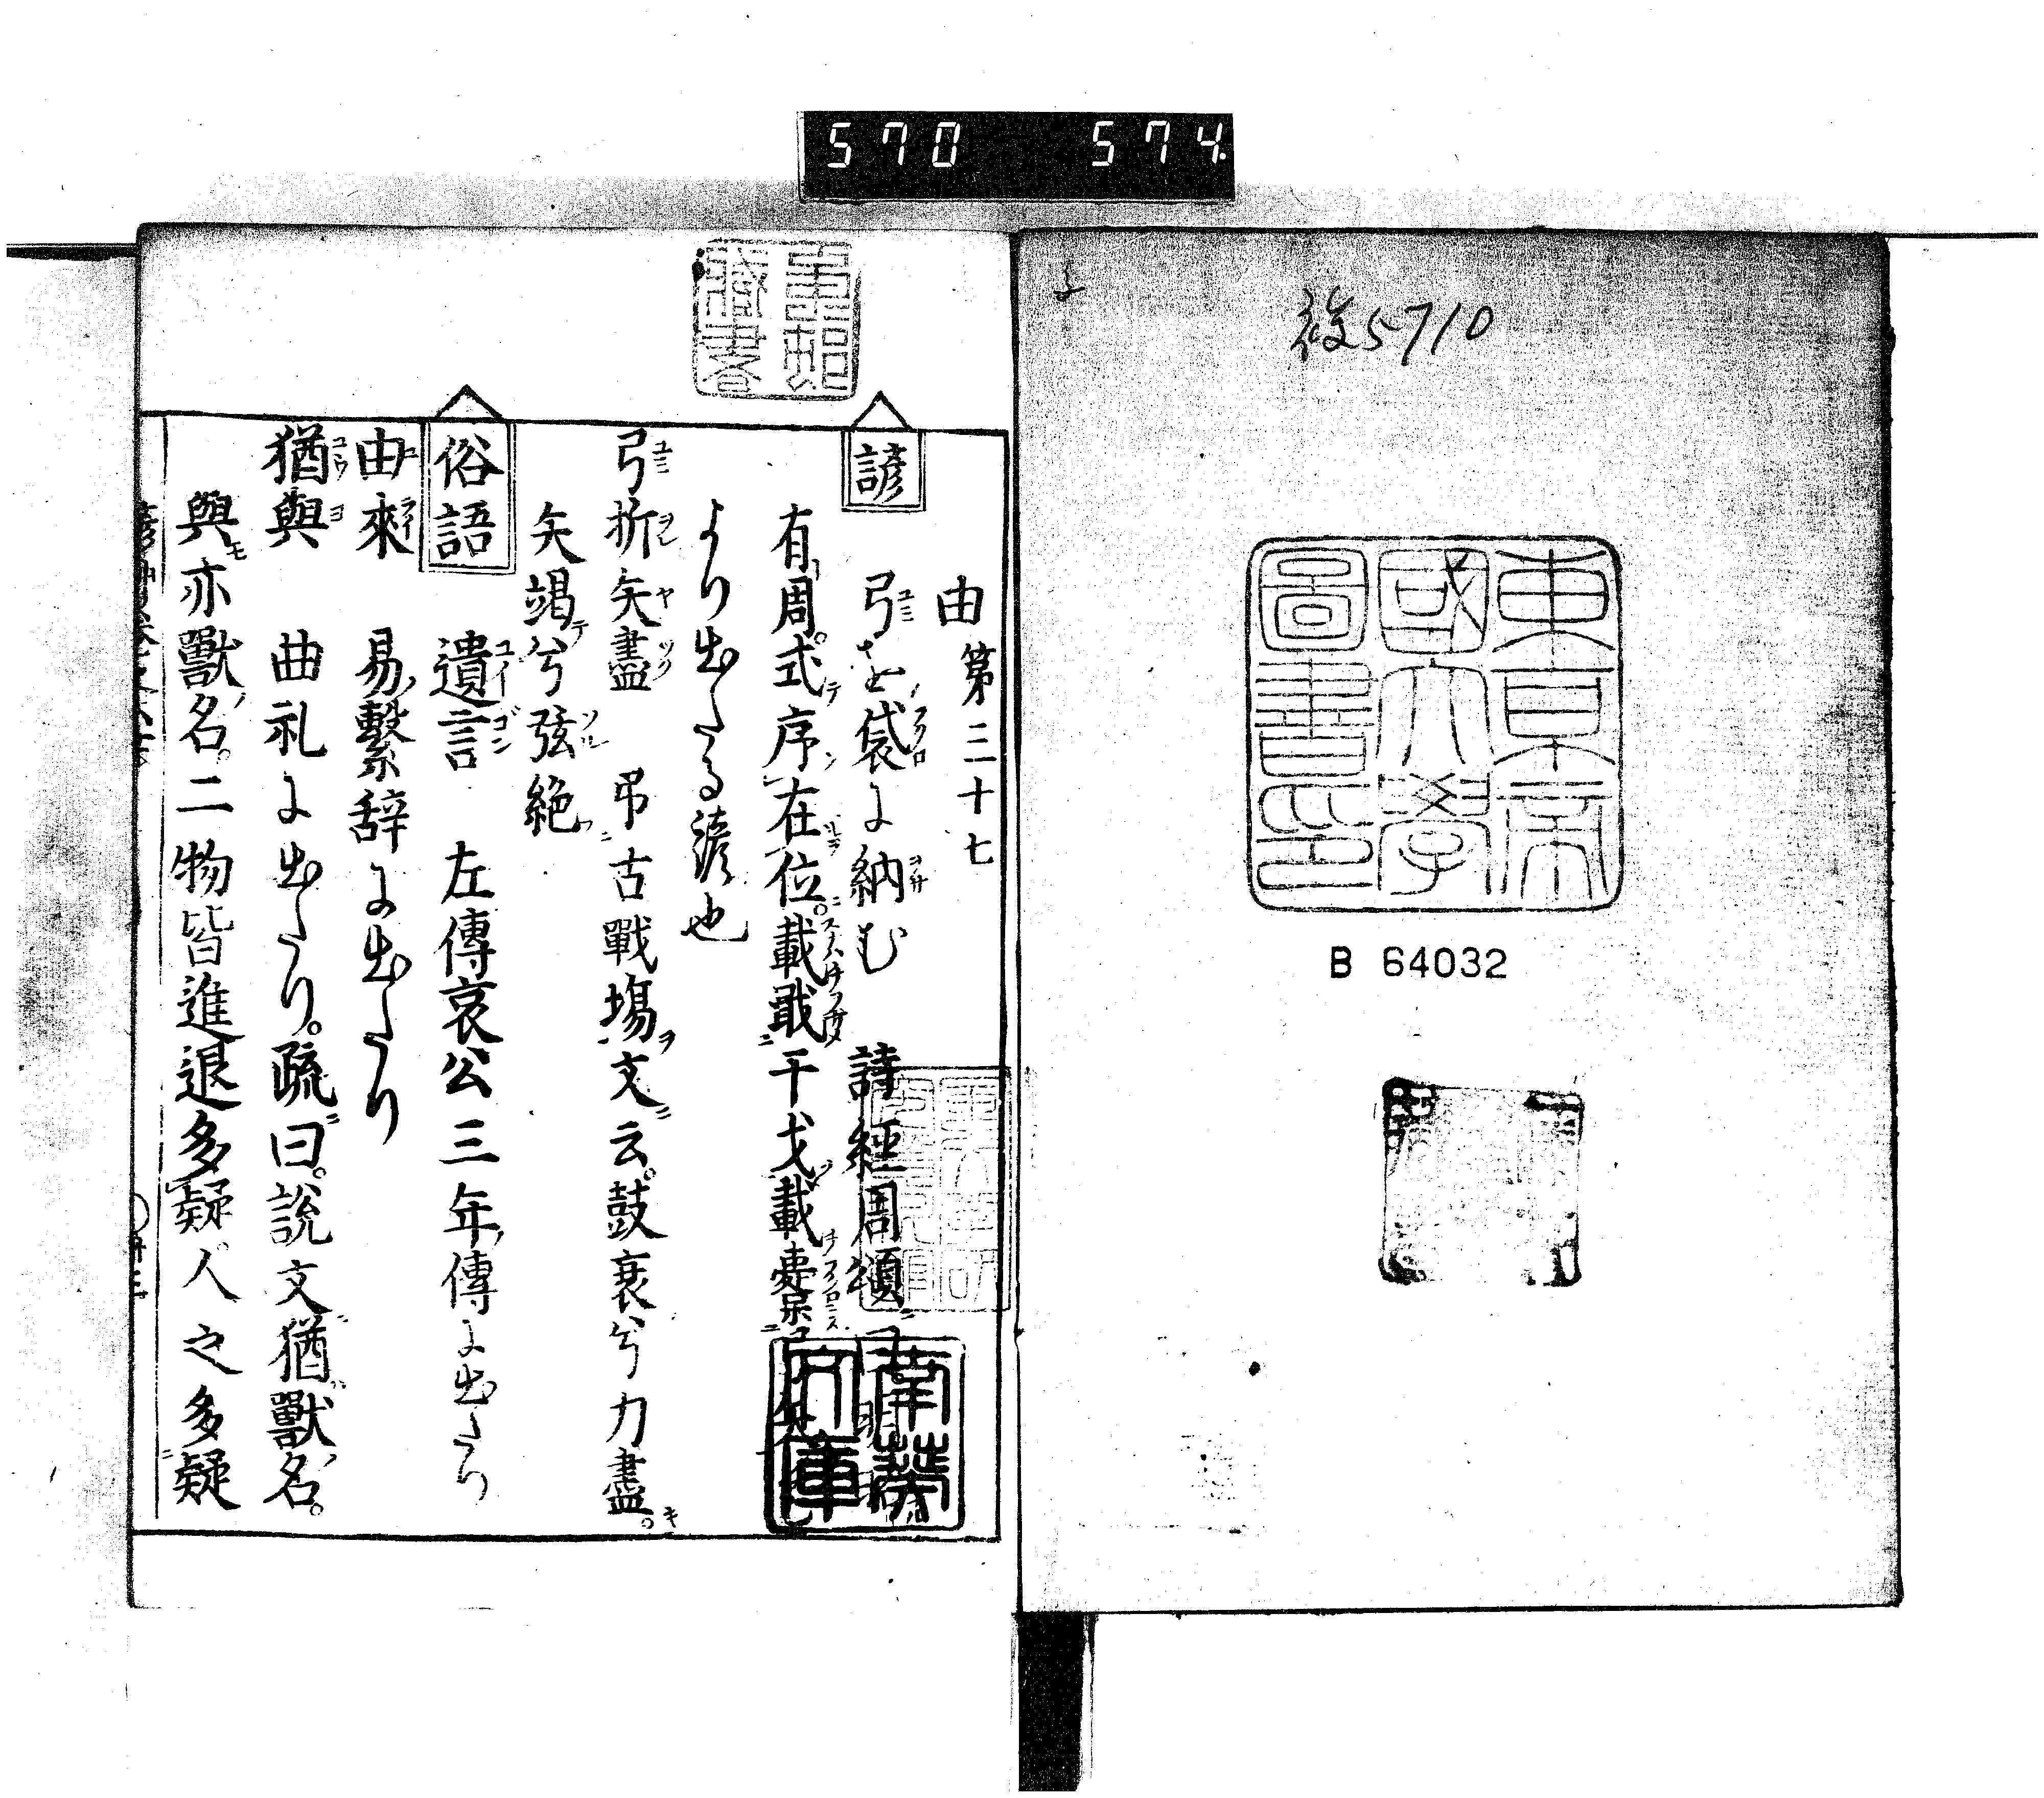 570 574
後5710
東京帝
國大學
圖書印
B 64032
由第三十七
諺
弓を袋に納む 詩經周頌
有周式序在位。載戢干戈載櫜弓
より出たる諺也
弓折矢盡 弔古戰場文云。鼓衰兮力盡。
矢竭兮弦絶
俗語 遺言 左傳哀公三年傳に出たり
由來 易繫辞に出たり
猶與 曲礼に出たり。疏曰。說文猶獸名。
與亦獸名。二物皆進退多疑人之多疑
藏書
南葵
文庫